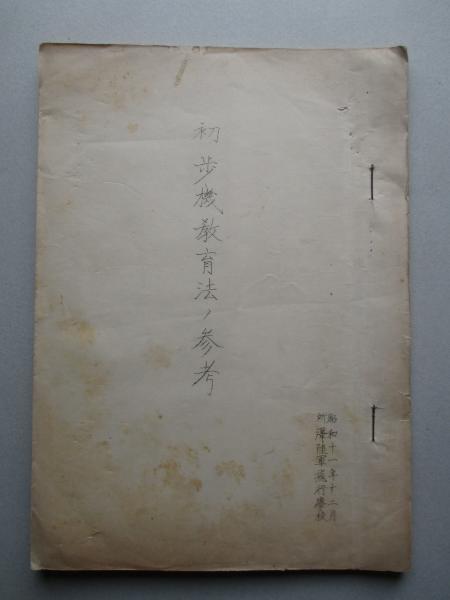 初歩機教育法ノ参考
昭和十一年十二月
所澤陸軍飛行學校